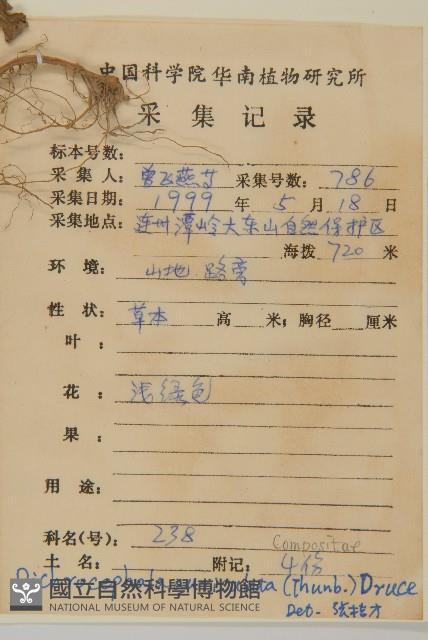 中国科学院华南植物研究所
采集记录
标本号数：
采集人：曾飞燕等 采集号数：786
采集日期：1999年5月18日
采集地点：连州潭岭大东山自然保护区
海拨 720 米
环境：山地 路旁
性状：草本 高 米；胸径 厘米
叶：
花：浅绿色
果：
用途：
科名(号)：238 Compositae
土名： 附记：4份
(Thunb.) Druce
國立自然科學博物館
NATIONAL MUSEUM OF NATURAL SCIENCE
Det. 张桂才